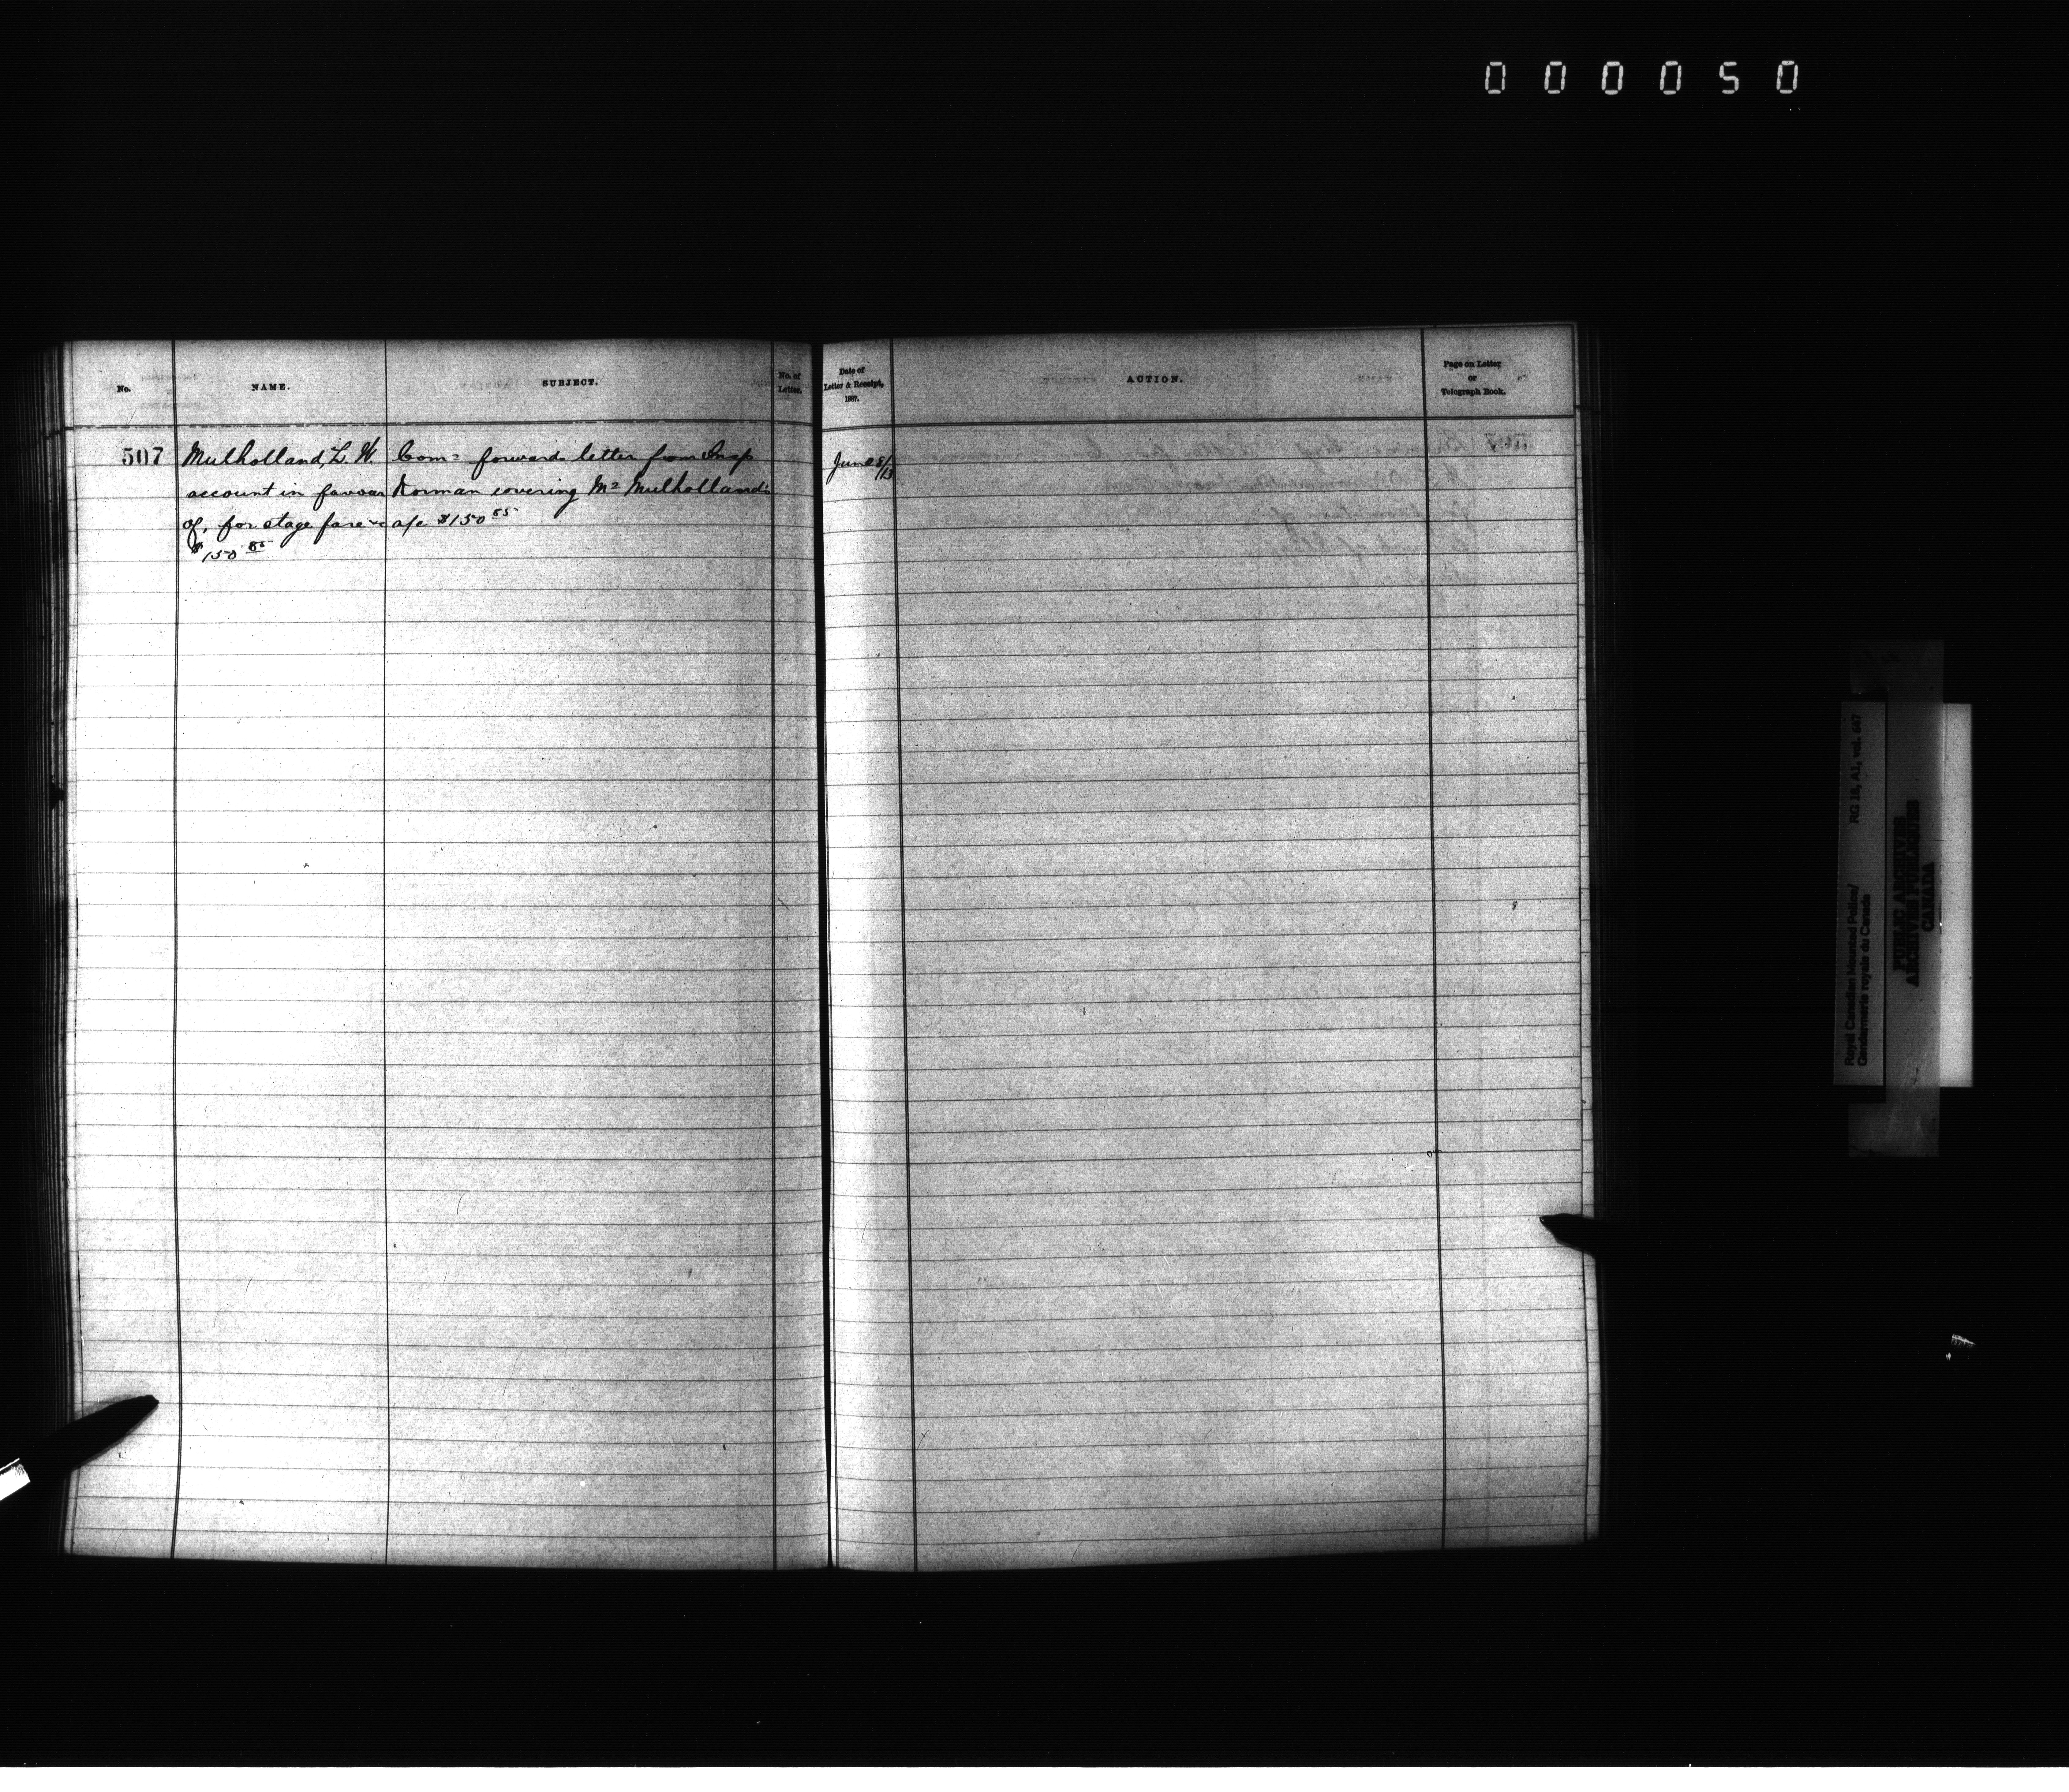 000050
No.
NAME.
SUBJECT.
No. of
Letter.
Date of
Letter & Receipt,
1887.
ACTION.
Page on Letter
or
Telegraph Book.
507
Mulholland, L. W.
account in favour
of, for stage fare
$150 85
Com= forwards letter from Insp
Norman covering Mr Mulholland's
a/c $150 85
June 8/13
Royal Canadian Mounted Police/
Gendarmerie royale du Canada
RG 18, A1, vol. 647
PUBLIC ARCHIVES
ARCHIVES PUBLIQUES
CANADA